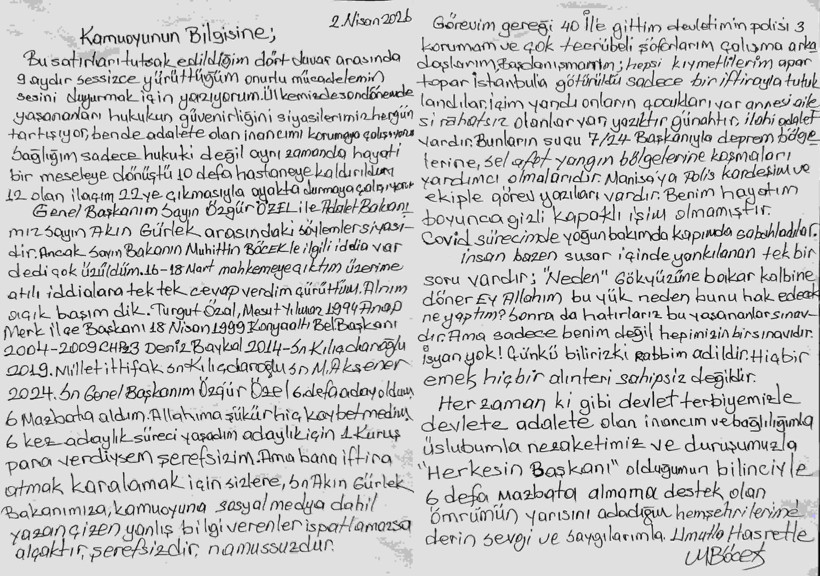 2.Nisan 2026
Kamuoyunun Bilgisine;
Bu satırları tutsak edildiğim dört duvar arasında
9 aydır sessizce yürüttüğüm onurlu mücadelemin
sesini duyurmak için yazıyorum. Ülkemizde son dönemde
yaşananları hukukun güvenirliğini siyasilerimiz hergün
tartışıyor, bende adalete olan inancımı korumaya çalışıyorum
Sağlığım sadece hukuki değil aynı zamanda hayati
bir meseleye dönüştü 10 defa hastaneye kaldırıldım
12 olan ilaçım 22 ye çıkmasıyla ayakta durmaya çalışıyorum
Genel Başkanım Sayın Özgür ÖZEL ile Adalet Bakanı
mız Sayın Akın Gürlek arasındaki söylemler siyasi-
dir. Ancak Sayın Bakanın Muhittin BÖCEK le ilgili iddia var
dedi çok üzüldüm. 16-18 Mart mahkemeye çıktım üzerime
atılı iddialara tek tek cevap verdim çürüttüm. Alnım
açık başım dik. Turgut Özal, Mesut Yılmaz 1994 Anap
Merk ilçe Başkanı 18 Nisan 1999 Konyaaltı Bel Başkanı
2004-2009 CHP Deniz Baykal 2014-Sn Kılıçdaroğlu
2019. Millet ittifak Sn Kılıçdaroğlu Sn M. Akşener
2024. Sn Genel Başkanım Özgür Özel 6 defa aday oldum
6 Mazbata aldım. Allahıma şükür hiç kaybetmedim
6 kez adaylık süreci yaşadım adaylık için 1 Kuruş
para verdiysem şerefsizim. Ama bana iftira
atmak karalamak için sizlere, Sn Akın Gürlek
Bakanımıza, kamuoyuna sosyal medya dahil
yazan çizen yanlış bilgi verenler ispatlamazsa
alçaktır, şerefsizdir, namussuzdur.
Görevim gereği 40 İl'e gittim devletimin polisi 3
korumam ve çok tecrübeli şoförlarım çalışma arka
daşlarım, Başdanışmanım; hepsi kıymetlilerim apar
topar İstanbul'a götürüldü sadece bir iftirayla tutuk
landılar. içim yandı onların çocukları var annesi aile
si rahatsız olanlar var, yazıktır günahtır, ilahi adalet
vardır. Bunların suçu 7/24 Başkanıyla deprem bölge
lerine, sel afet yangın bölgelerine koşmaları
yardımcı olmalarıdır. Manisa'ya Polis kardeşim ve
ekiple görev yazıları vardır. Benim hayatım
boyunca gizli kapaklı işim olmamıştır.
Covid sürecimde yoğun bakımda kapımda sabahladılar.
İnsan bazen susar içinde yankılanan tek bir
soru vardır; "Neden" Gökyüzüne bakar kalbine
döner Ey Allahım bu yük neden bunu hak edecek
ne yaptım? Sonra da hatırlarız bu yaşananlar sınav-
dır. Ama sadece benim değil hepimizin bir sınavıdır.
isyan yok! Çünkü biliriz ki Rabbim adildir. Hiçbir
emek hiçbir alınteri sahipsiz değildir.
Her zaman ki gibi devlet terbiyemizle
devlete adalete olan inancım ve bağlılığımla
üslubumla nezaketimiz ve duruşumuzla
"Herkesin Başkanı" olduğumun bilinciyle
6 defa Mazbata almama destek olan
Ömrümün yarısını adadığım hemşehrilerime
derin sevgi ve saygılarımla. Umutla Hasretle
MBöcek